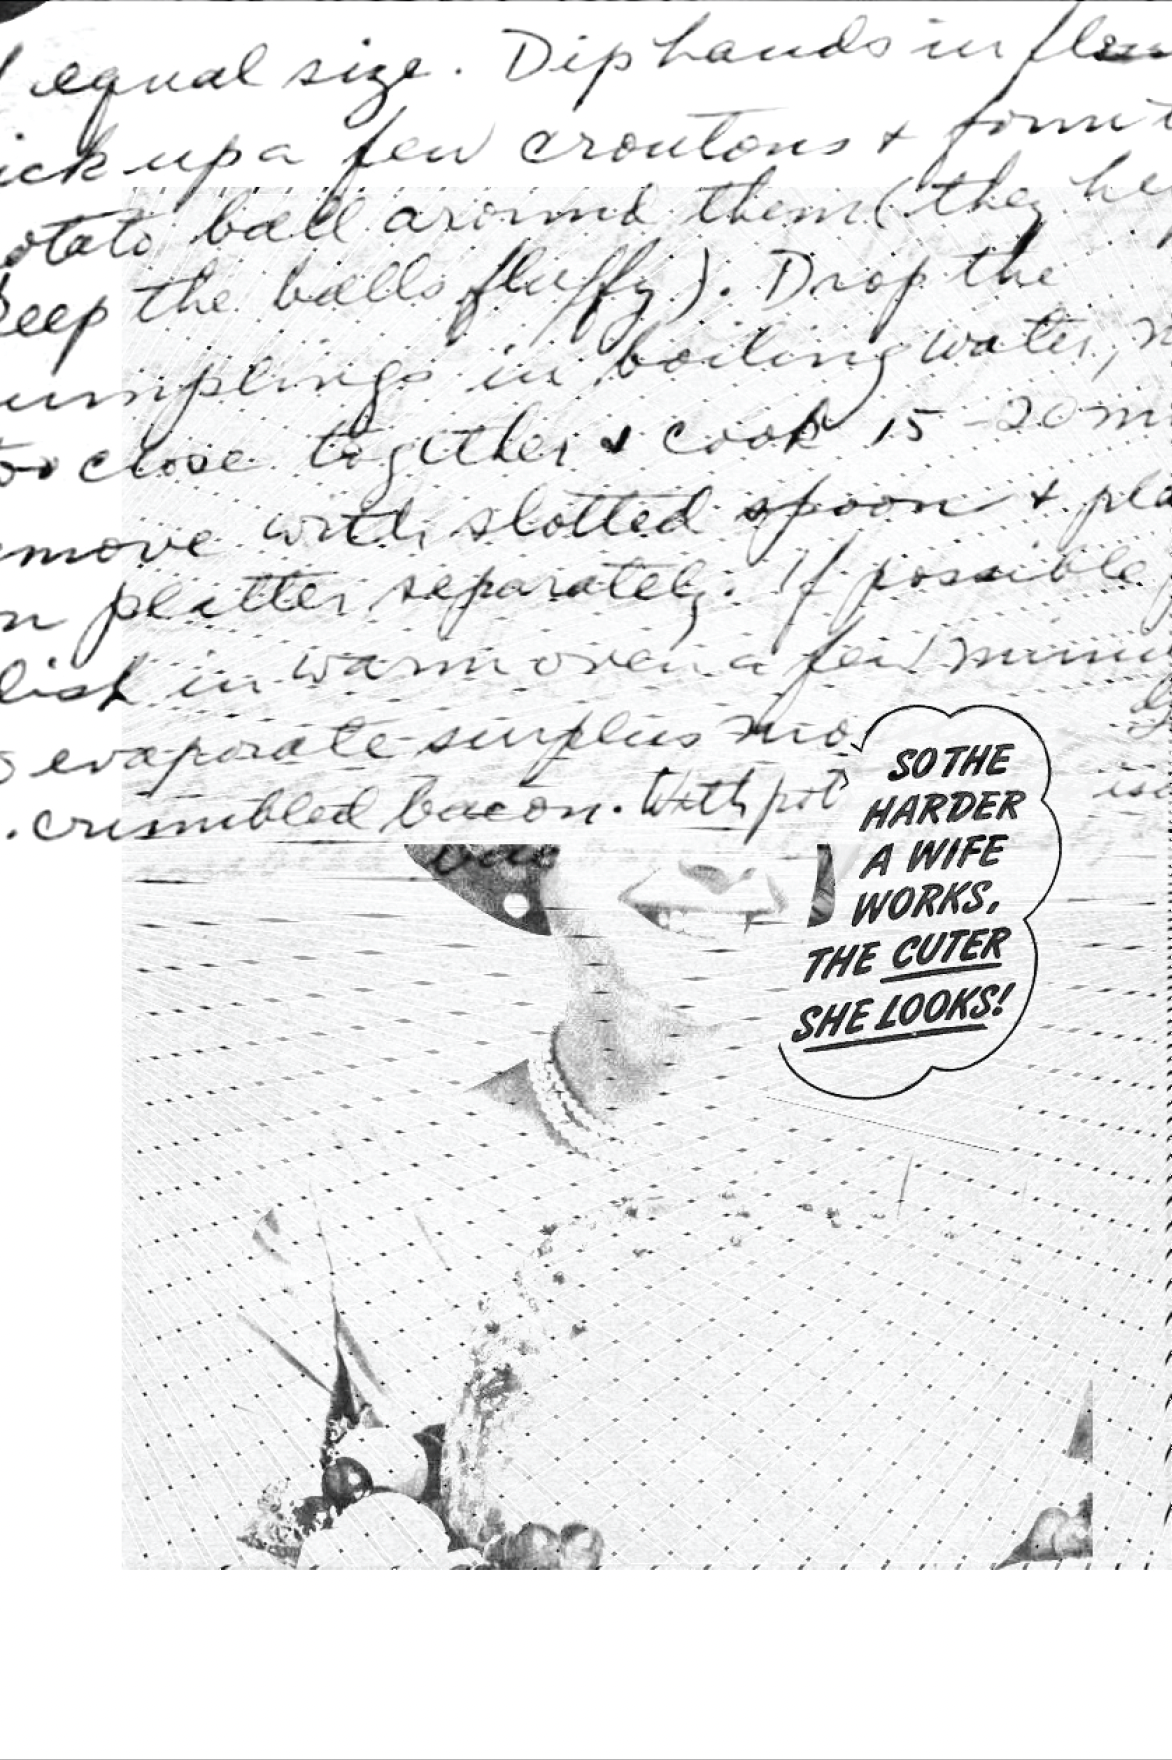 equal size. Dip hands in
ick up a few croutons + form
otato ball around them (they he
eep the balls fluffy). Drop the
umplings in boiling water,
oo close together & cook 15-20 m
move with slotted spoon + pla
n platter separately. If possible
dish in warm oven a few minu
evaporate surplus mo
. crumbled bacon. With pot
bac
SO THE
HARDER
A WIFE
WORKS,
THE CUTER
SHE LOOKS!